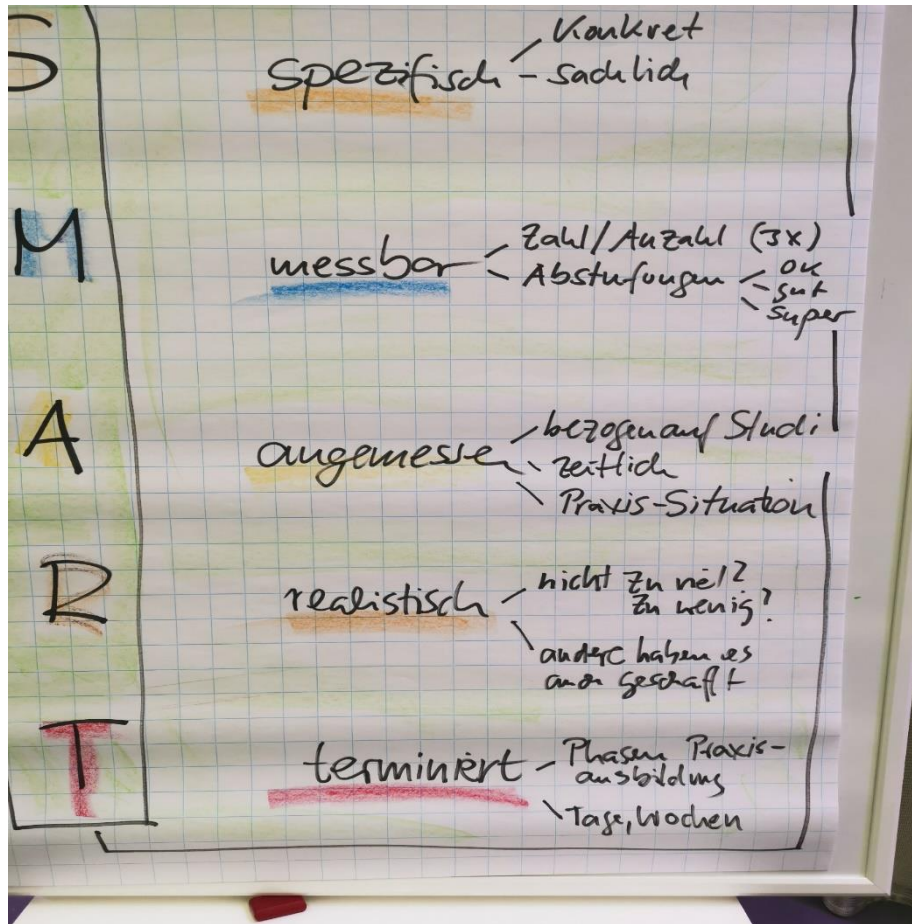 S
spezifisch
Konkret
sachlich
M
messbar
Zahl/Anzahl (3x)
Abstufungen
ok
gut
super
A
angemessen
bezogen auf Studi
zeitlich
Praxis-Situation
R
realistisch
nicht zu viel?
zu wenig?
andere haben es
auch geschafft
T
terminiert
Phasen Praxis-
ausbildung
Tage, Wochen